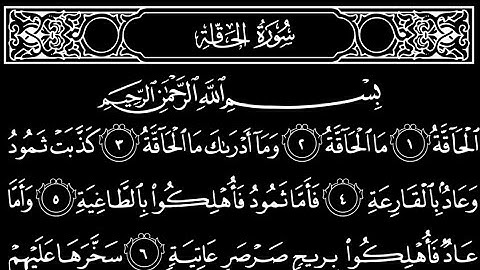 سُورَةُ الحَاقَّة
بِسْمِ ٱللَّهِ ٱلرَّحْمَٰنِ ٱلرَّحِيمِ
ٱلْحَآقَّةُ ١ مَا ٱلْحَآقَّةُ ٢ وَمَآ أَدْرَىٰكَ مَا ٱلْحَآقَّةُ ٣ كَذَّبَتْ ثَمُودُ
وَعَادٌۢ بِٱلْقَارِعَةِ ٤ فَأَمَّا ثَمُودُ فَأُهْلِكُوا۟ بِٱلطَّاغِيَةِ ٥ وَأَمَّا
عَادٌ فَأُهْلِكُوا۟ بِرِيحٍ صَرْصَرٍ عَاتِيَةٍ ٦ سَخَّرَهَا عَلَيْهِمْ